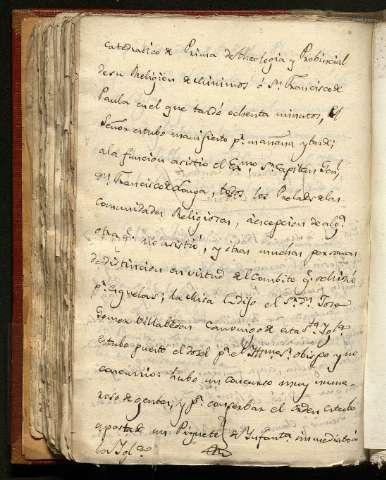 Catedratico de Prima de theologia y Provincial
de su Religion de Minimos ó Sn. Francisco de
Paula en el que tardó ochenta minutos, el
Señor estubo manifiesto pr. mañana y tarde;
a la funcion asistio el Exmo. Sr. Capitan Genl.
Dn. Francisco de Longa, todos los Prelados de las
Comunidades Religiosas, a escepcion de alga.
otra qe. no asistió, y otras muchas personas
de distincion en virtud del Combite qe. se hizo
pr. esquelas; la Misa la dijo el Sr. Dn. Jose
Gomez Villalobos Canonigo de esta Sta. Iga.
estubo puesto el dosel pr. el Illmo. Sr. obispo y no
concurrio: hubo un concurso muy nume-
roso de gentes; y pr. conserbar el orden estubo
apostado un Piquete de Infanta. inmediato á
la Igla.